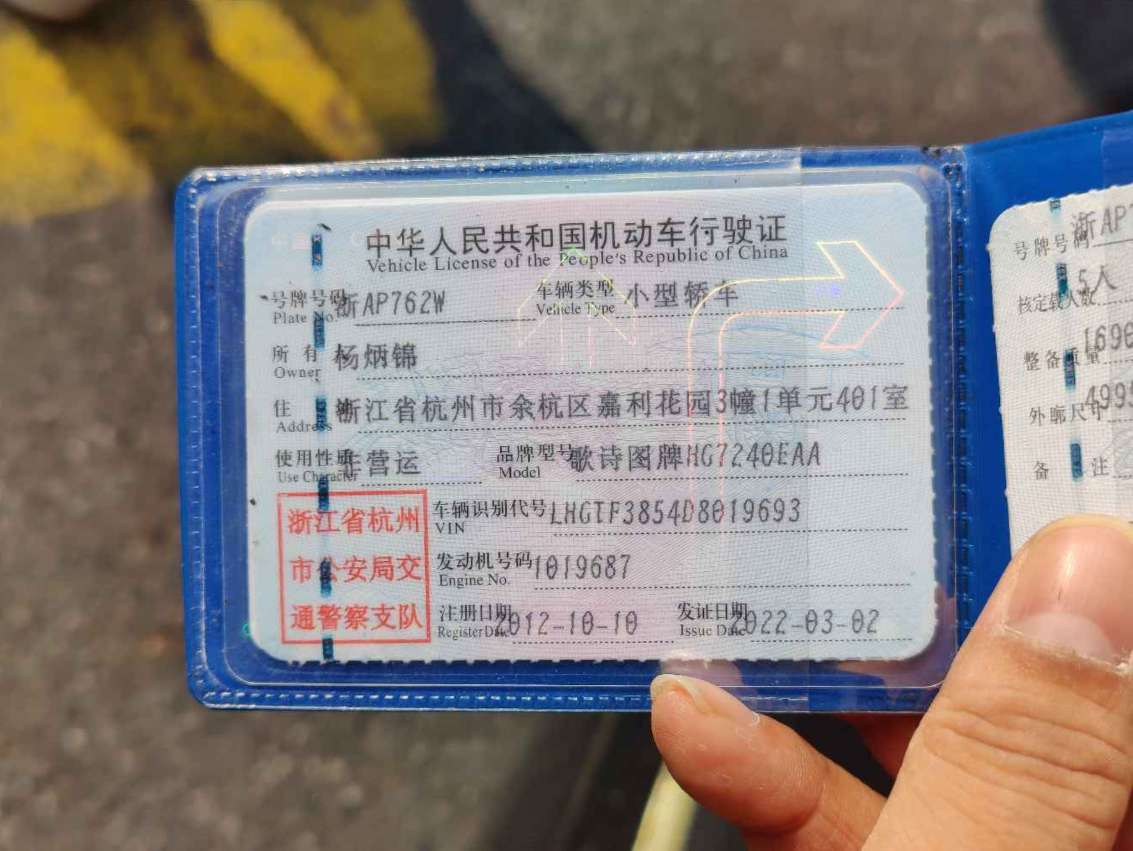 中华人民共和国机动车行驶证
Vehicle License of the People's Republic of China
号牌号码 浙AP762W 车辆类型 小型轿车
Plate No. Vehicle Type
所有 杨炳锦
Owner
住 浙江省杭州市余杭区嘉利花园3幢1单元401室
Address
使用性质 非营运 品牌型号 歌诗图牌HG7240EAA
Use Character Model
浙江省杭州
市公安局交
通警察支队
车辆识别代号 LHGTF3854D8019693
VIN
发动机号码 1019687
Engine No.
注册日期 2012-10-10 发证日期 2022-03-02
Register Date Issue Date
号牌号码 浙AP7
核定载人数 5人
整备质量 1696
外廓尺寸 4995
备 注